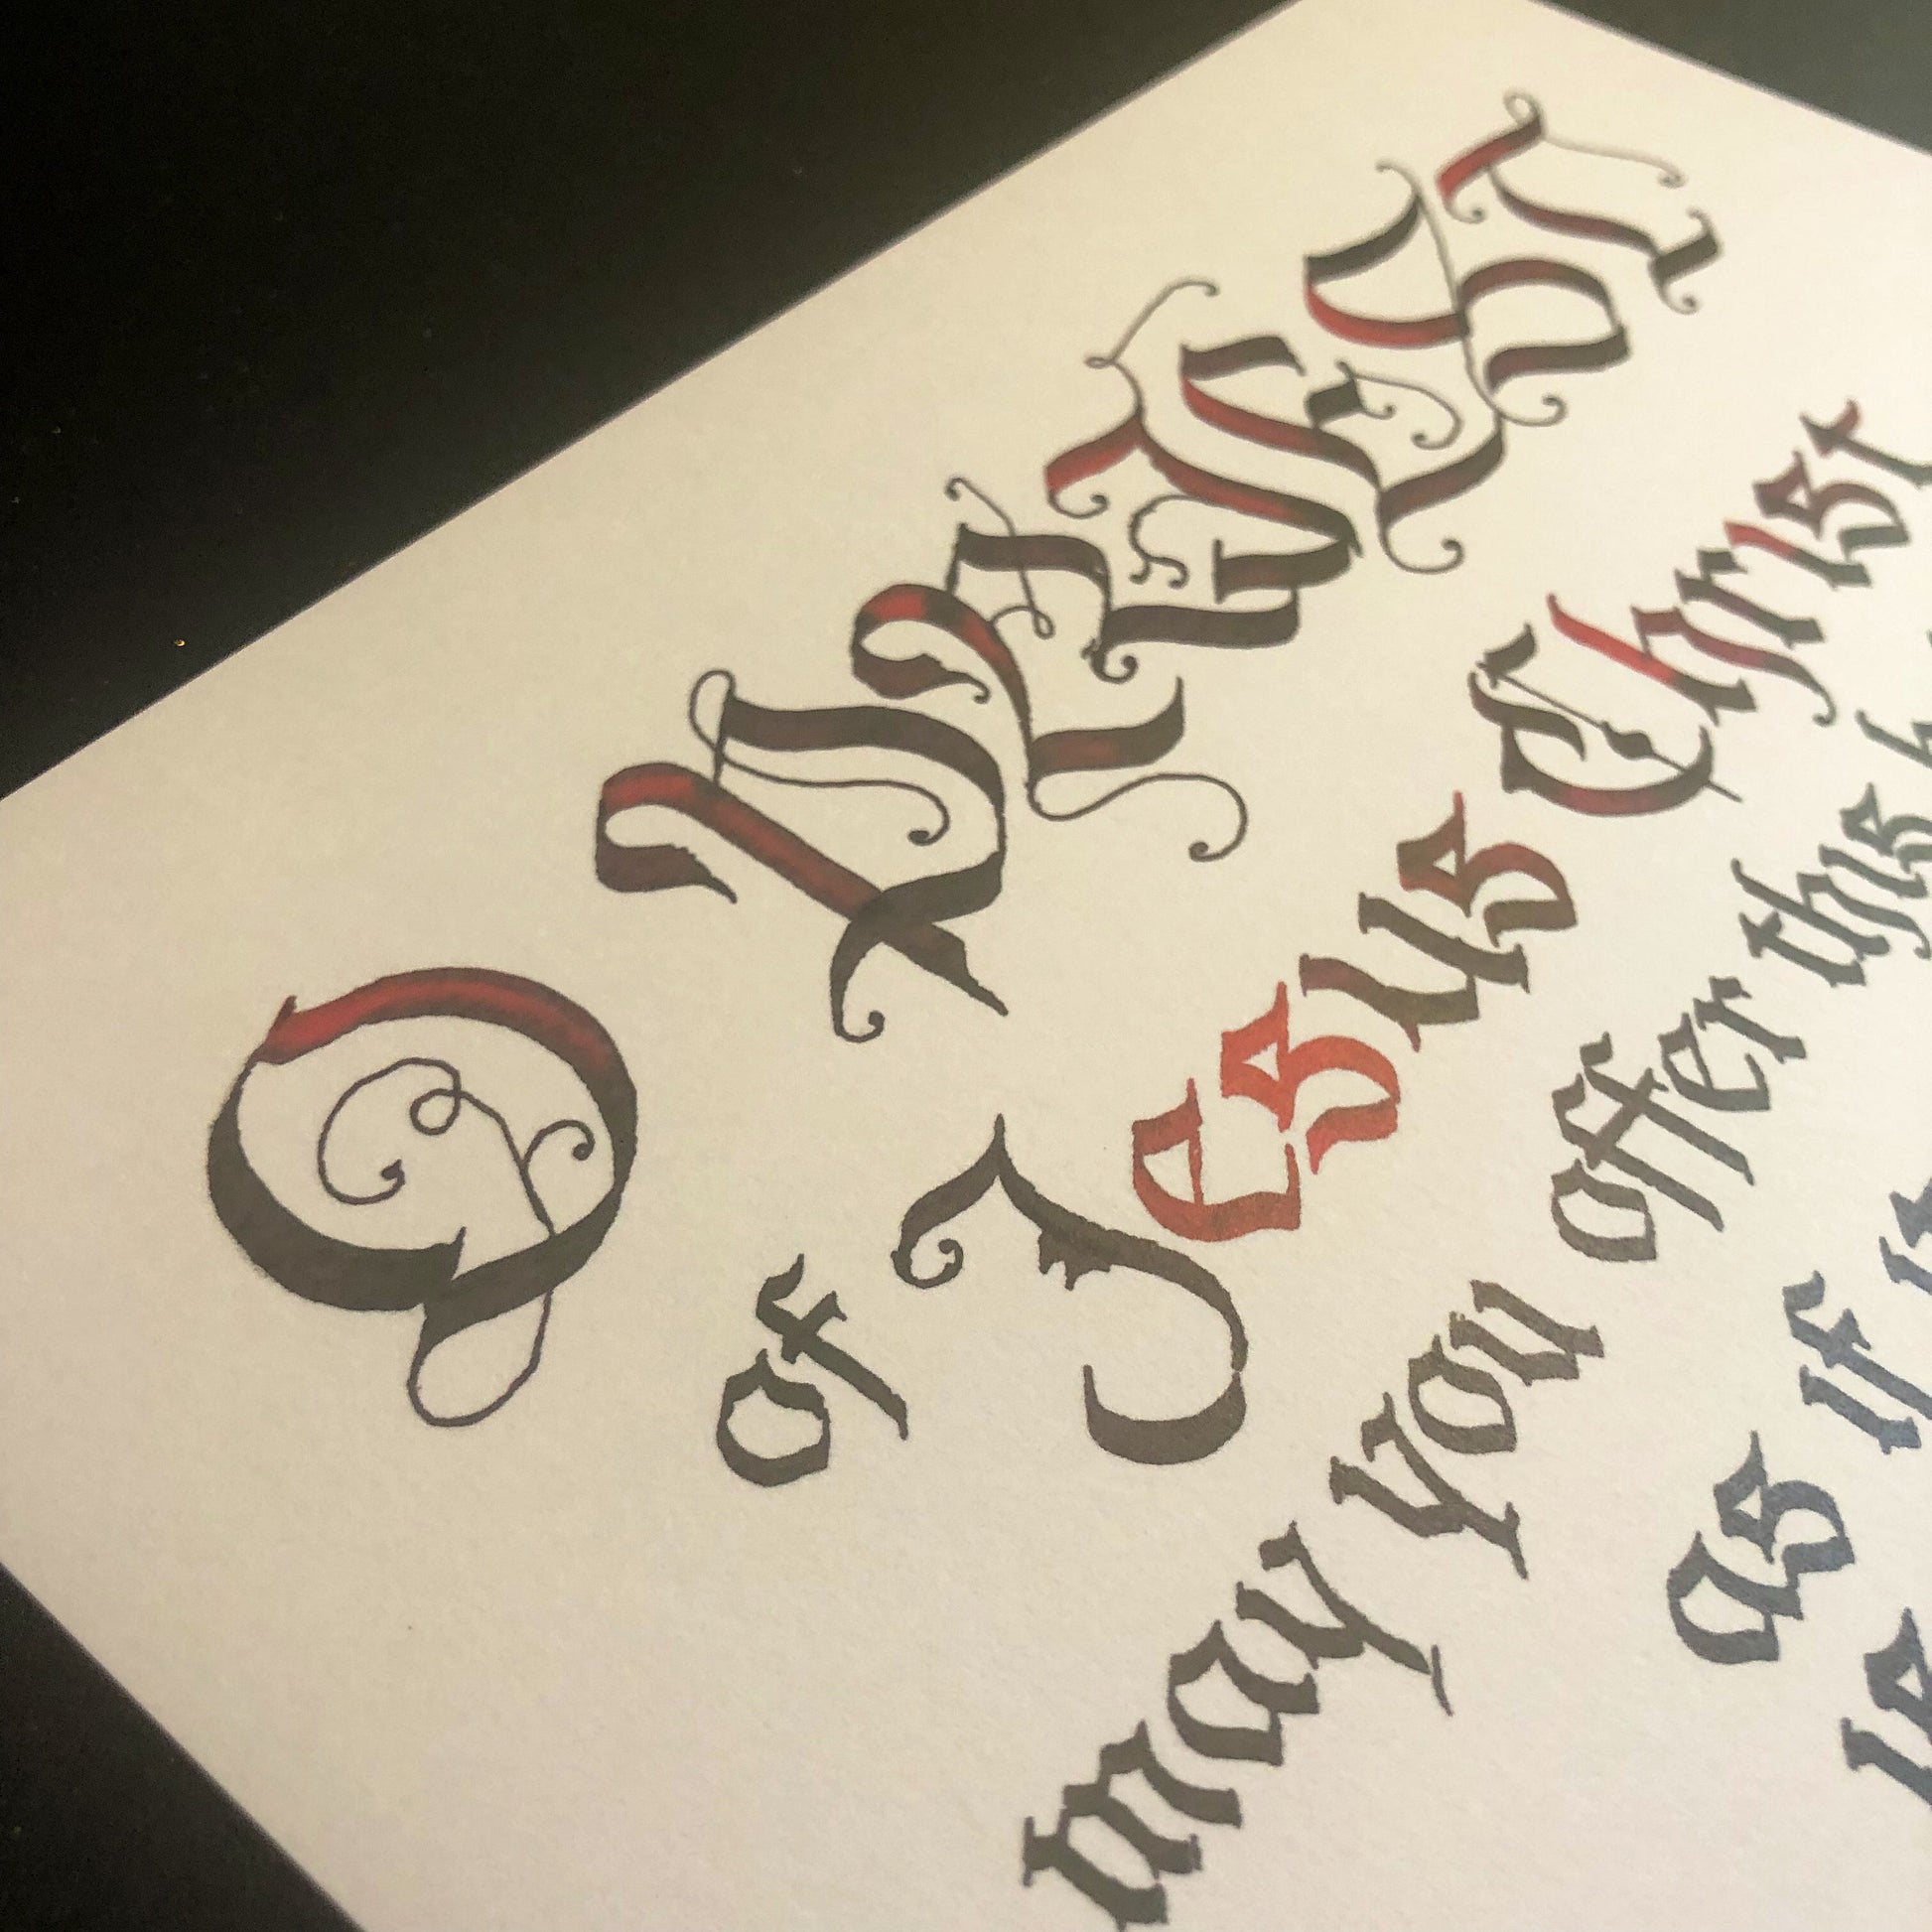 O PRIEST
of Jesus Christ
may you offer this
as if